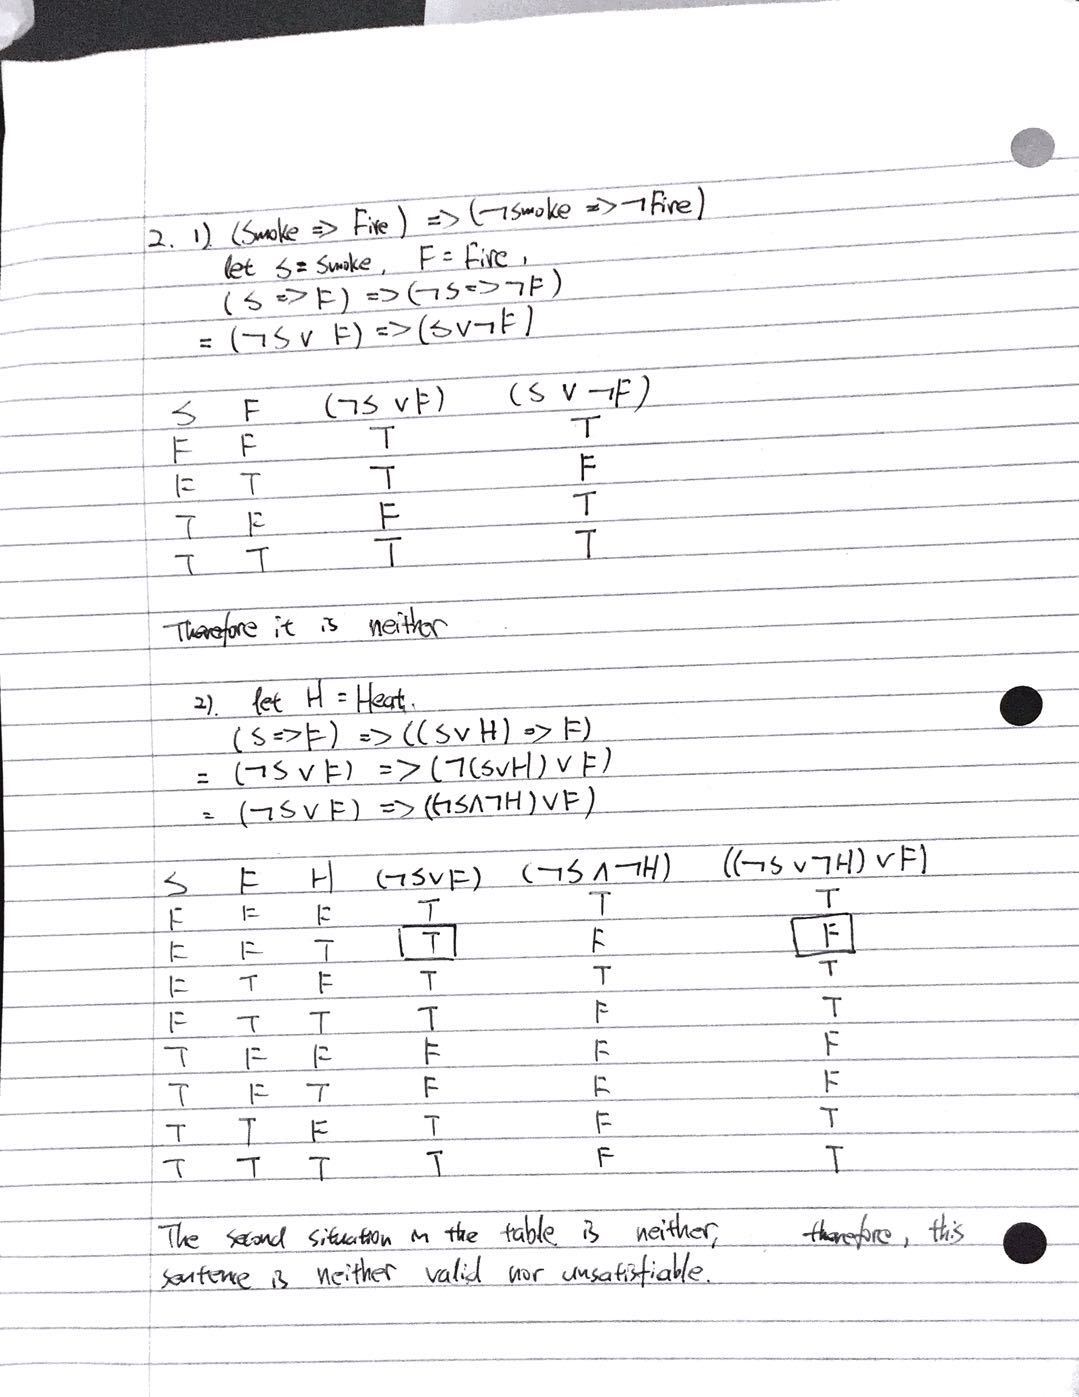 2. 1). (Smoke => Fire) => (¬Smoke => ¬Fire)
let S = Smoke, F = Fire,
(S => F) => (¬S => ¬F)
= (¬S ∨ F) => (S ∨ ¬F)
S F (¬S ∨ F) (S ∨ ¬F)
F F T T
F T T F
T F F T
T T T T
Therefore it is neither
2). let H = Heat.
(S => F) => ((S ∨ H) => F)
= (¬S ∨ F) => (¬(S ∨ H) ∨ F)
= (¬S ∨ F) => ((¬S ∧ ¬H) ∨ F)
S F H (¬S ∨ F) (¬S ∧ ¬H) ((¬S ∨ ¬H) ∨ F)
F F F T T T
F F T T F F
F T F T T T
F T T T F T
T F F F F F
T F T F F F
T T F T F T
T T T T F T
The second situation in the table is neither, therefore, this
sentence is neither valid nor unsatisfiable.